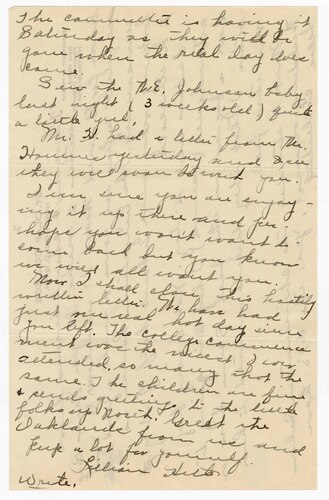 The committee is having it
Saturday as they will be
gone when the real day does
come.
Saw the W.E. Johnson baby
last night (3 weeks old) quite
a little girl.
Mr. H. had a letter from Mr.
yesterday and I see
they will soon be with you.
I am sure you are enjoy-
ing it up there and for
hope you won't want to
come back but you know
we will all want you.
Now I shall close this hastily
written letter. We have had
just one real hot day since
you left. The college commence
ment was the nicest I ever
attended, so many that the
same. The children are fine
& sends greetings to the little
folks up North. Greet the
Oaklands from us and
keep a lot for yourself.
Lilian
Write.